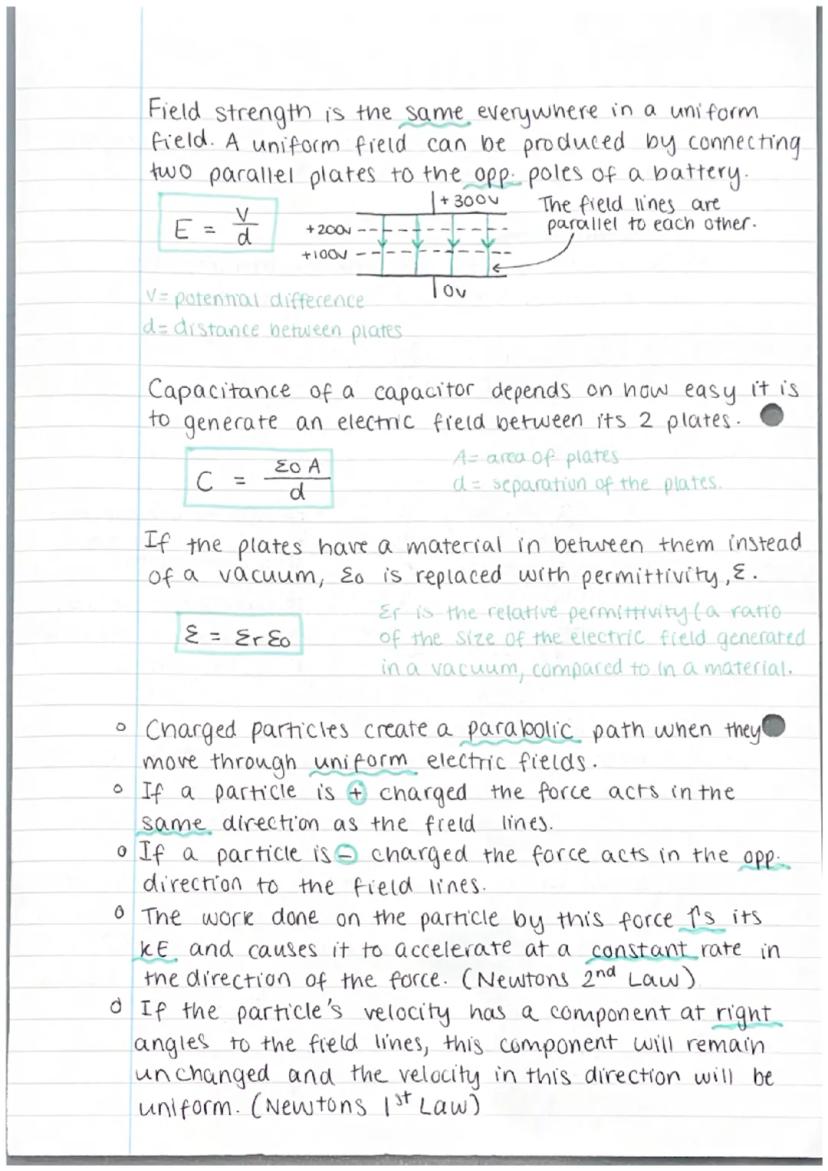 Field strength is the same everywhere in a uniform
field. A uniform field can be produced by connecting
two parallel plates to the opp. poles of a battery.
E = V/d
+300v
+200v
+100v
0v
The field lines are
parallel to each other.
V= potential difference
d= distance between plates
Capacitance of a capacitor depends on how easy it is
to generate an electric field between its 2 plates.
C = ε0 A/d
A= area of plates
d = separation of the plates.
If the plates have a material in between them instead
of a vacuum, ε0 is replaced with permittivity, ε.
ε = εr ε0
εr is the relative permittivity (a ratio
of the size of the electric field generated
in a vacuum, compared to in a material.
o Charged particles create a parabolic path when they
move through uniform electric fields.
o If a particle is + charged the force acts in the
same direction as the field lines.
o If a particle is - charged the force acts in the opp.
direction to the field lines.
o The work done on the particle by this force ↑s its
KE and causes it to accelerate at a constant rate in
the direction of the force. (Newtons 2nd Law)
o If the particle's velocity has a component at right
angles to the field lines, this component will remain
unchanged and the velocity in this direction will be
uniform. (Newtons 1st Law)